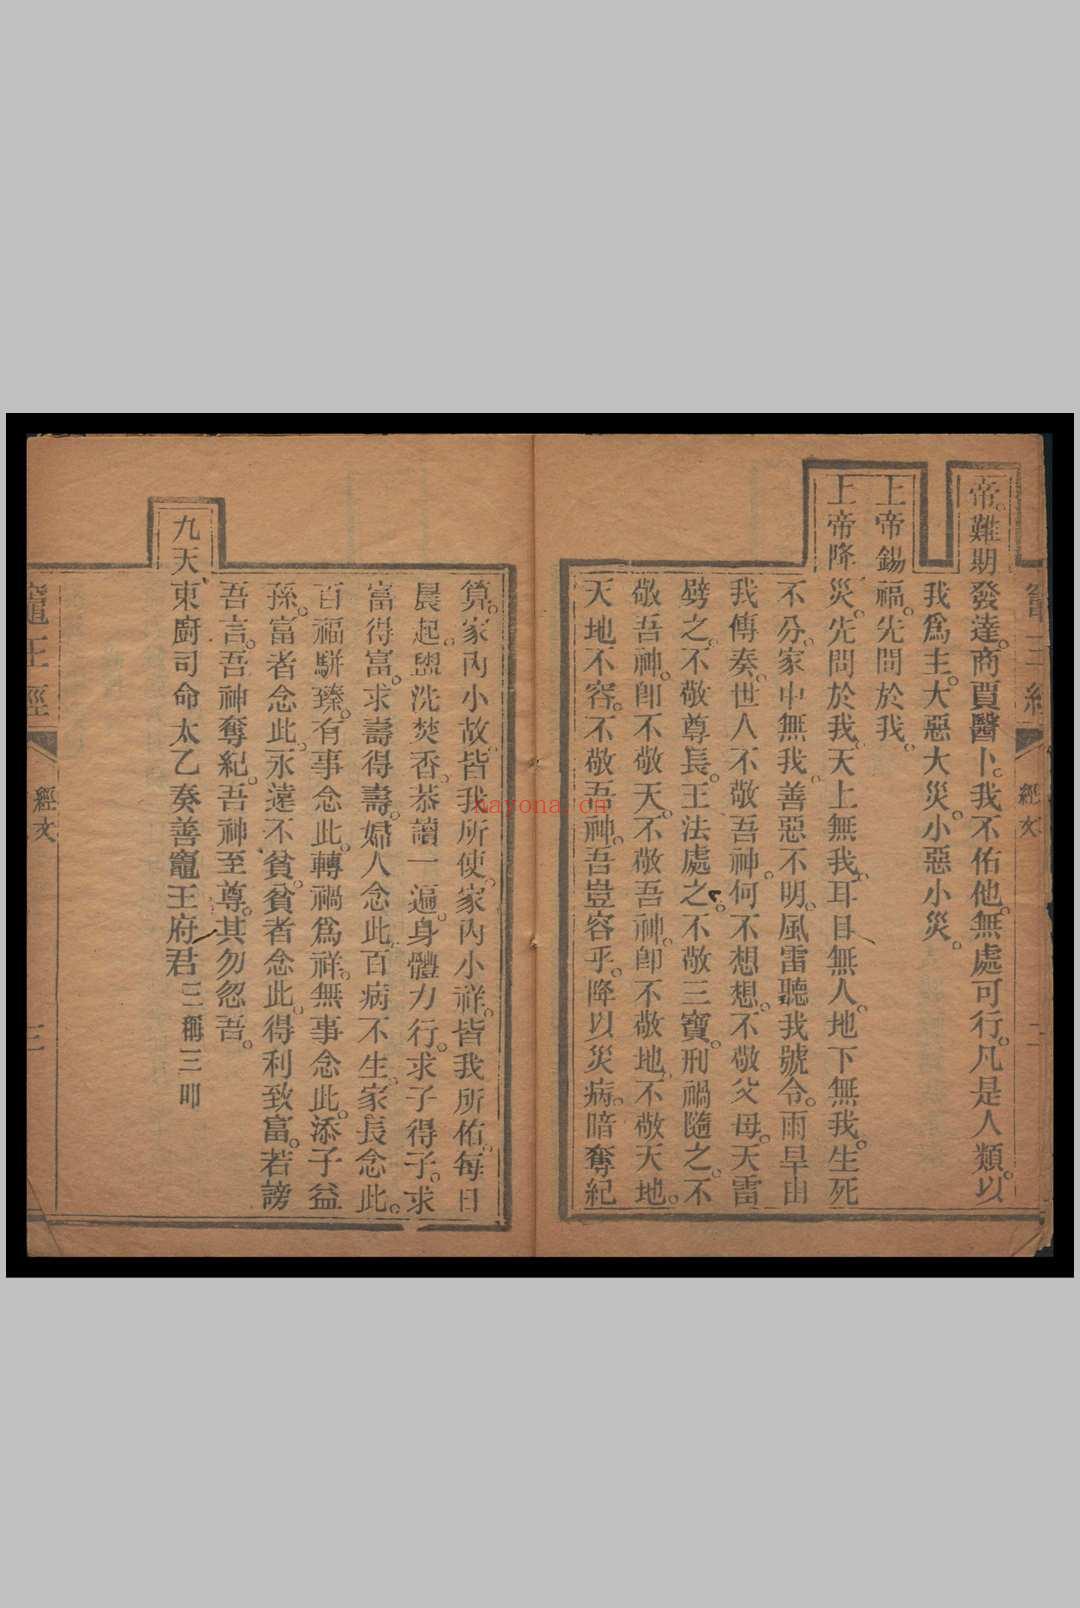 竈王經 經文 二
帝。難期發達。商賈醫卜。我不佑他。無處可行。凡是人類。以
我爲主。大惡大災。小惡小災。
上帝錫福。先問於我。
上帝降災。先問於我。天上無我。耳目無人。地下無我。生死
不分。家中無我。善惡不明。風雷聽我號令。雨旱由
我傳奏。世人不敬吾神。何不想想。不敬父母。天雷
劈之。不敬尊長。王法處之。不敬三寶。刑禍隨之。不
敬吾神。卽不敬天。不敬吾神。卽不敬地。不敬天地。
天地不容。不敬吾神。吾豈容乎。降以災病。暗奪紀
算。家內小故。皆我所使。家內小祥。皆我所佑。每日
晨起。盥洗焚香。恭讀一遍。身體力行。求子得子。求
富得富。求壽得壽。婦人念此。百病不生。家長念此。
百福駢臻。有事念此。轉禍爲祥。無事念此。添子益
孫。富者念此。永遠不貧。貧者念此。得利致富。若謗
吾言。吾神奪紀。吾神至尊。其勿忽吾。
九天東廚司命太乙奏善竈王府君三稱三叩
竈王經 經文 三
nayona.cn